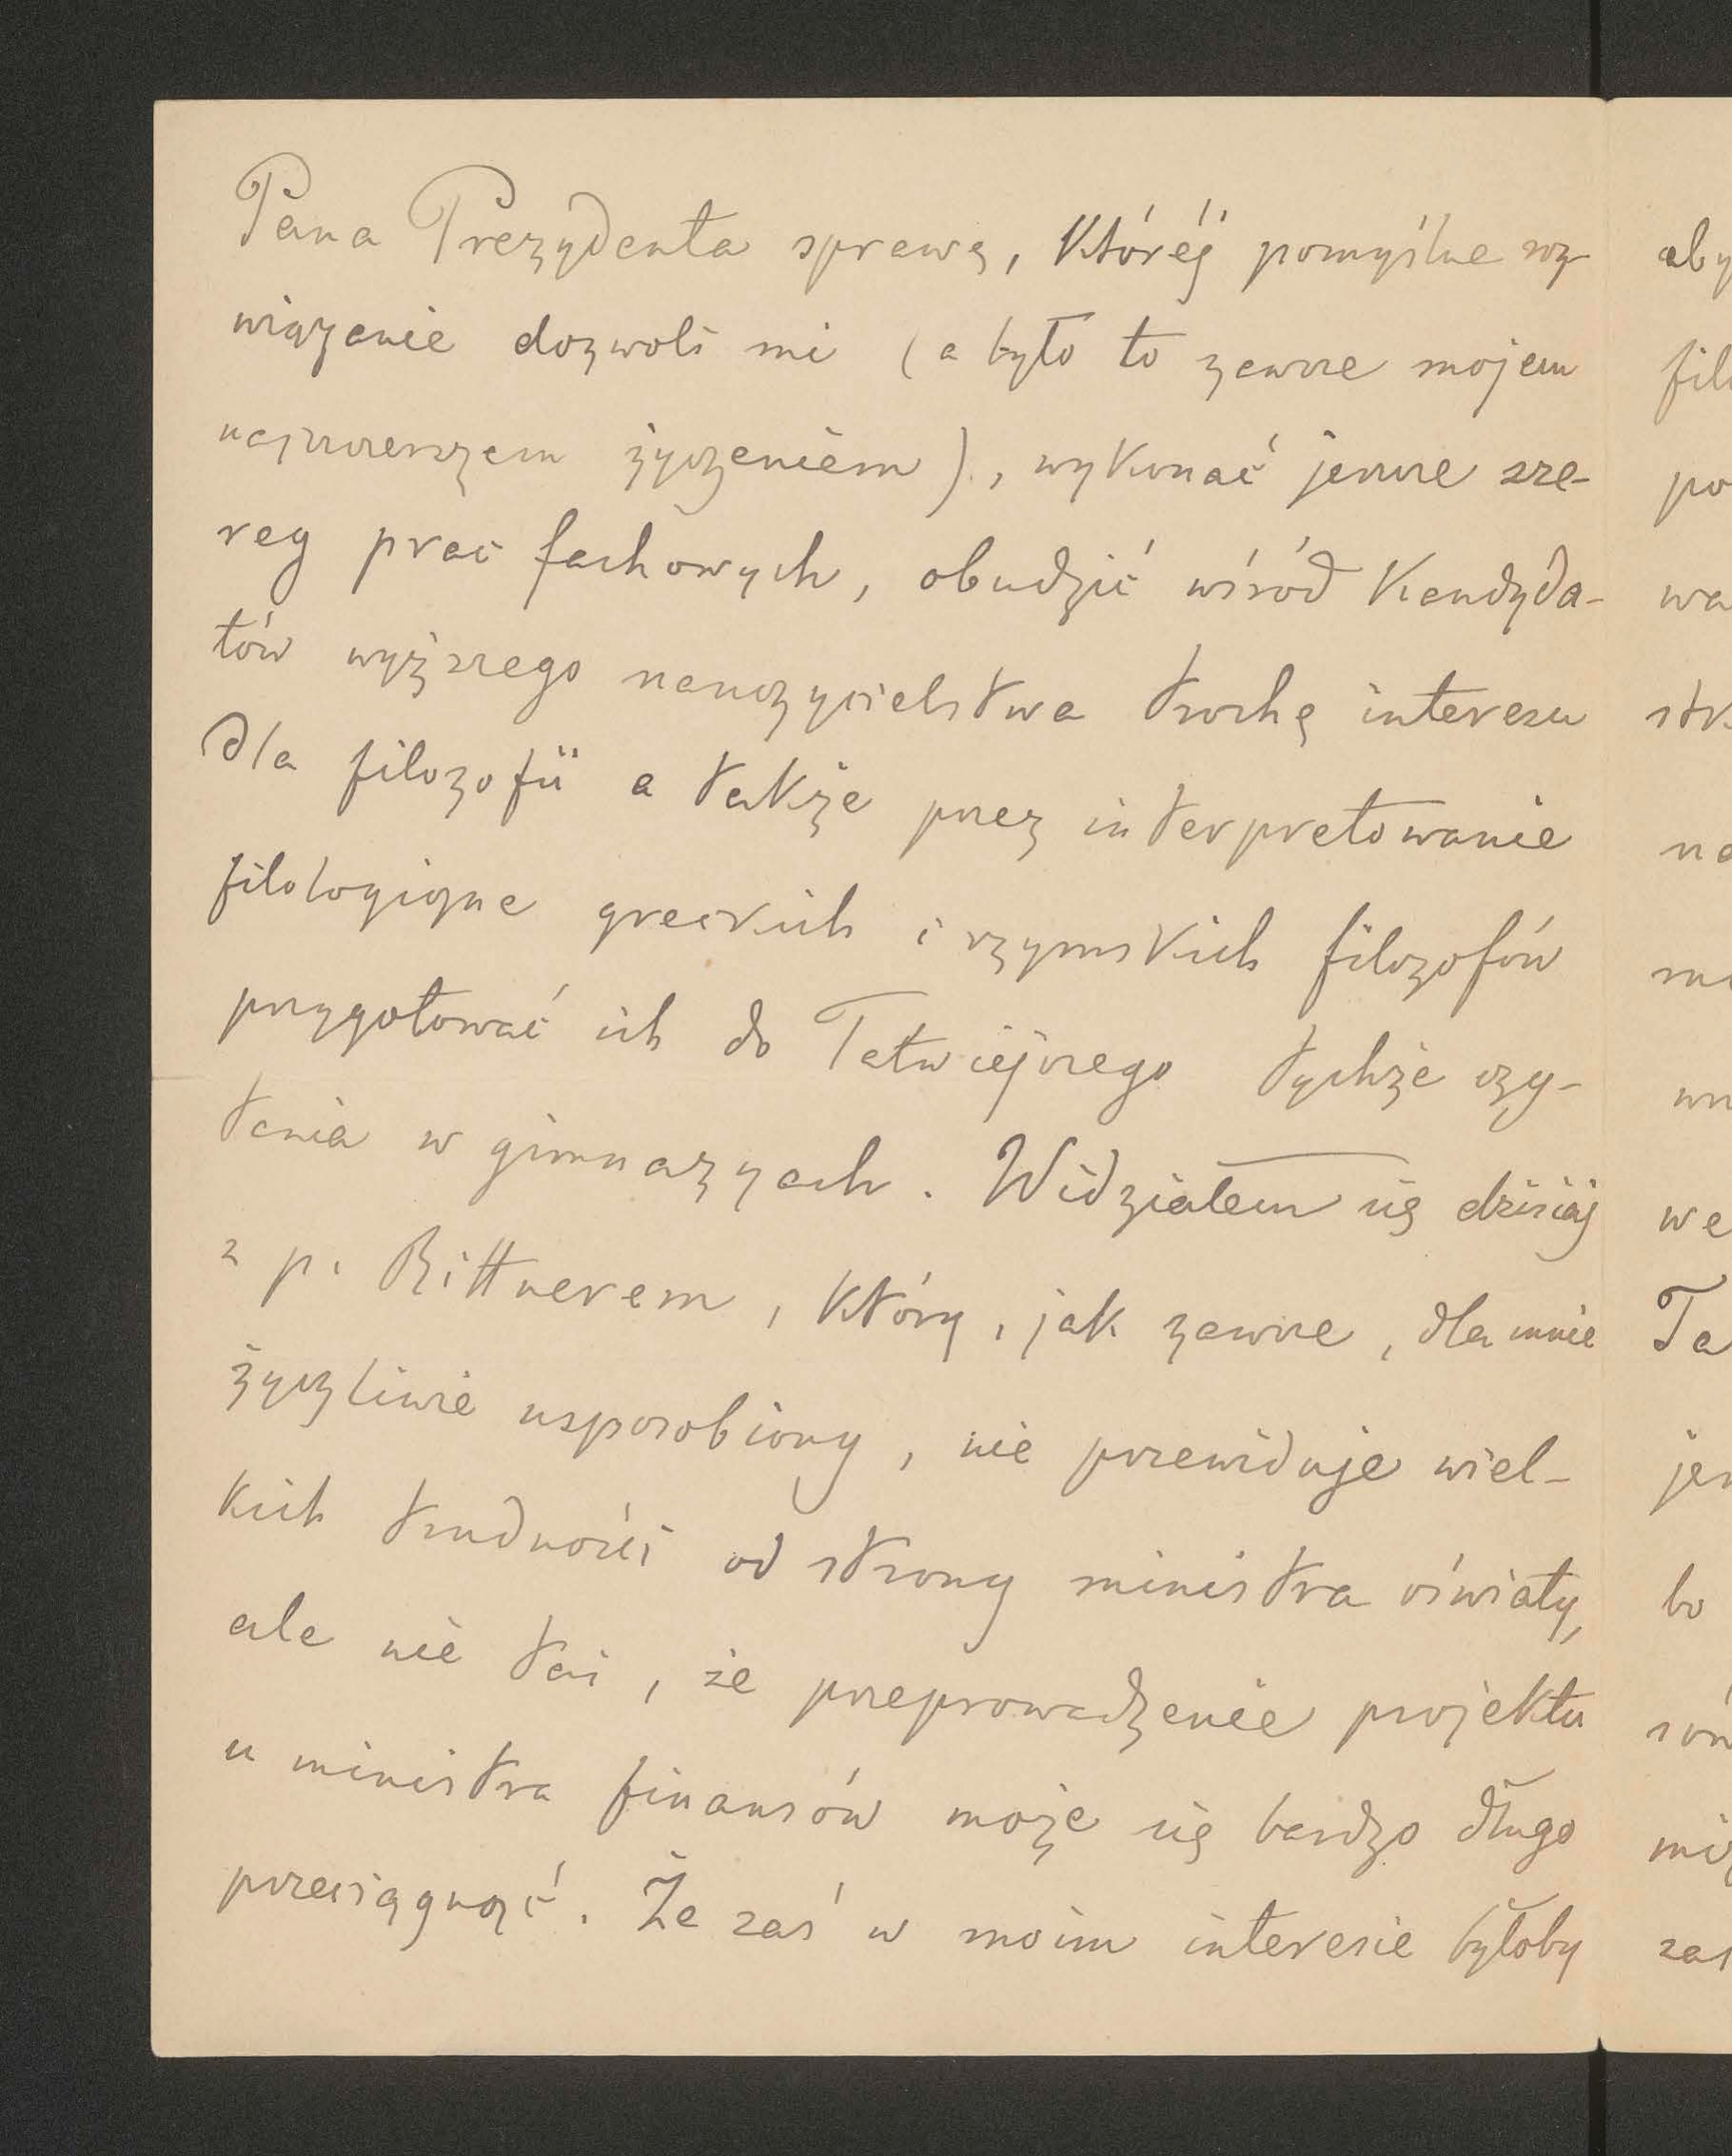 Pana Prezydenta sprawę, któréj pomyślne roz-
wiązanie dozwoli mi (a było to zawsze mojem
najszczerszem życzeniem), wykonać jeszcze sze-
reg prac fachowych, obudzić wśród kandyda-
tów wyższego nauczycielstwa trochę interesu
dla filozofii a także przez interpretowanie
filologiczne greckich i rzymskich filozofów
przygotować ich do łatwiejszego tychże czy-
tania w gimnazyach. Widziałem się dzisiaj
z p. Rittnerem, który, jak zawsze, dla mnie
życzliwie usposobiony, nie przewiduje wiel-
kich trudności od strony ministra oświaty,
ale nie tai, że przeprowadzenie projektu
u ministra finansów może się bardzo długo
przeciągnąć. Że zaś w moim interesie byłoby